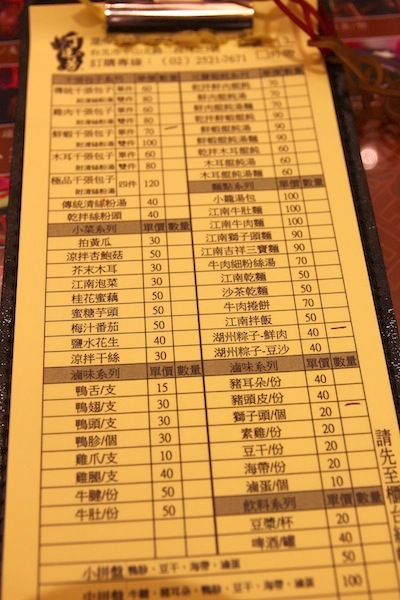 台北市中山北路
訂購專線：(02)2521-7671
千張包子系列 單價 數量
傳統千張包子 單件 60
附清絲粉湯 雙件 80
雞肉千張包子 單件 60
附清絲粉湯 雙件 80
鮮蝦千張包子 單件 70
附清絲粉湯 雙件 100
木耳千張包子 單件 60
附清絲粉湯 雙件 80
極品千張包子 四件 120
附清絲粉湯
傳統清絲粉湯 40
乾拌絲粉頭 40
小菜系列 單價 數量
拍黃瓜 30
涼拌杏鮑菇 50
芥末木耳 30
江南泡菜 30
桂花蜜藕 50
蜜糖芋頭 50
梅汁番茄 50
鹽水花生 40
涼拌干絲 30
滷味系列 單價 數量
鴨舌/支 15
鴨翅/支 30
鴨頭/支 30
鴨胗/個 30
雞爪/支 10
雞腿/支 40
牛腱/份 50
牛肚/份 50
單價 數量
乾拌鮮肉餛飩 70
鮮肉餛飩湯 70
鮮肉餛飩湯麵 90
乾拌鮮蝦餛飩 70
鮮蝦餛飩湯 70
鮮蝦餛飩湯麵 90
乾拌木耳餛飩 60
木耳餛飩湯 60
木耳餛飩湯麵 80
麵點系列 單價 數量
小籠湯包 100
江南牛肚麵 100
江南牛肉麵 100
江南獅子頭麵 90
江南吉祥三寶麵 90
牛肉細粉絲湯 70
江南乾麵 50
沙茶乾麵 50
牛肉捲餅 70
江南拌飯 50
湖州粽子-鮮肉 40
湖州粽子-豆沙 40
滷味系列 單價 數量
豬耳朵/份 40
豬頭皮/份 40
獅子頭/個 20
素雞/份 20
豆干/份 20
海帶/份 20
滷蛋/個 10
飲料系列 單價 數量
豆漿/杯 20
啤酒/罐 40
小拼盤 鴨胗、豆干、海帶、滷蛋 50
中拼盤 牛腱、豬耳朵、豆干、海帶、滷蛋 100
請先至櫃台